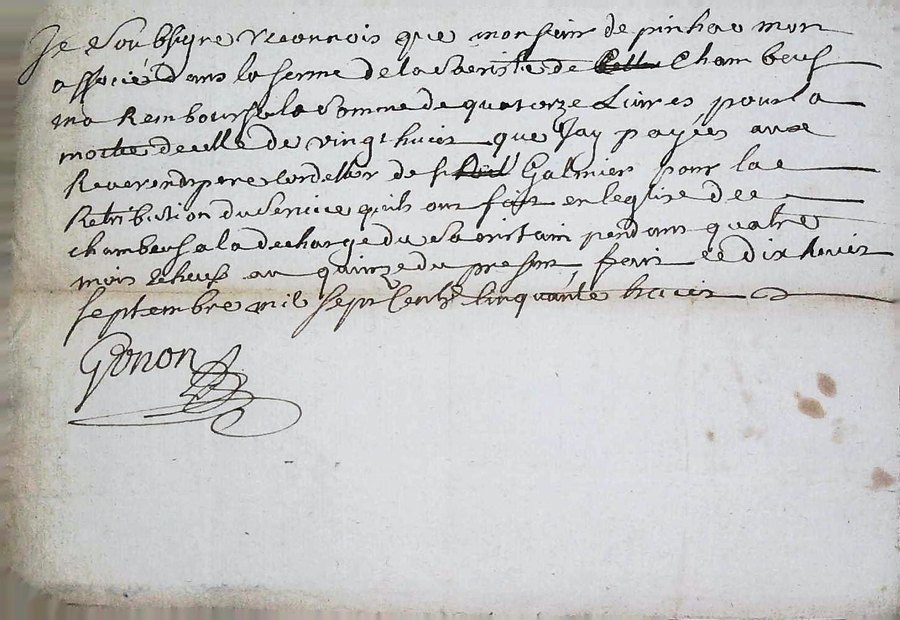 Je Soubsigne reconnois que monsieur de pinhac mon
associé dans la ferme de la Sacristie de Chambeuf
ma Remboursé la Somme de quatorze Livres pour la
moitie de celle de vingt huict que Jay payéé aux
Reverends pere Cordellier de St Galmier pour la
Retribution du Service quils ont fait en leglise de
chambeuf a la decharge du Sacristain pendant quatre
mois echeus au quinze du present, fait ce dix huict
septembre mil sept Cents Cinquante huict
Gonon